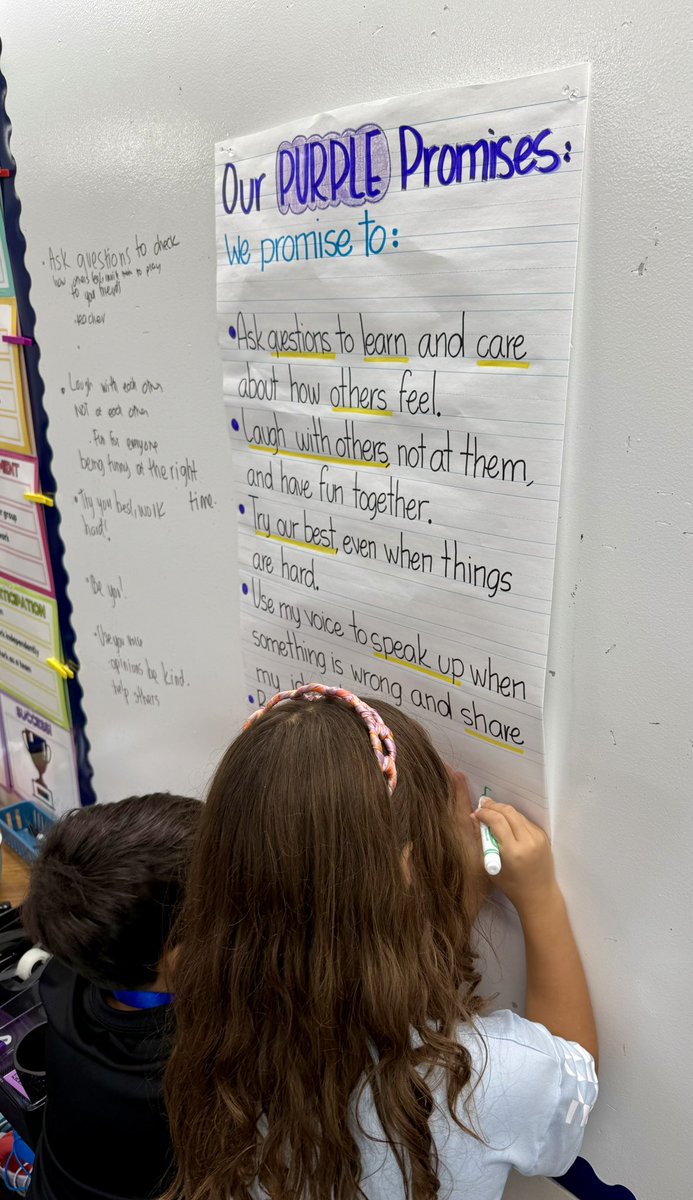 Our PURPLE Promises:
We promise to:
• Ask questions to learn and care
about how others feel.
• Laugh with others, not at them,
and have fun together.
• Try our best, even when things
are hard.
• Use my voice to speak up when
something is wrong and share
my
• Ask questions to check
to your friends
teacher
• Laugh with each other
NOT at each other
. Fun for everyone
being funny at the right
time.
• Try you best, work
hard!
"Be you!
opinions be kind.
help others
work independently
work as a team
SUCCESS!